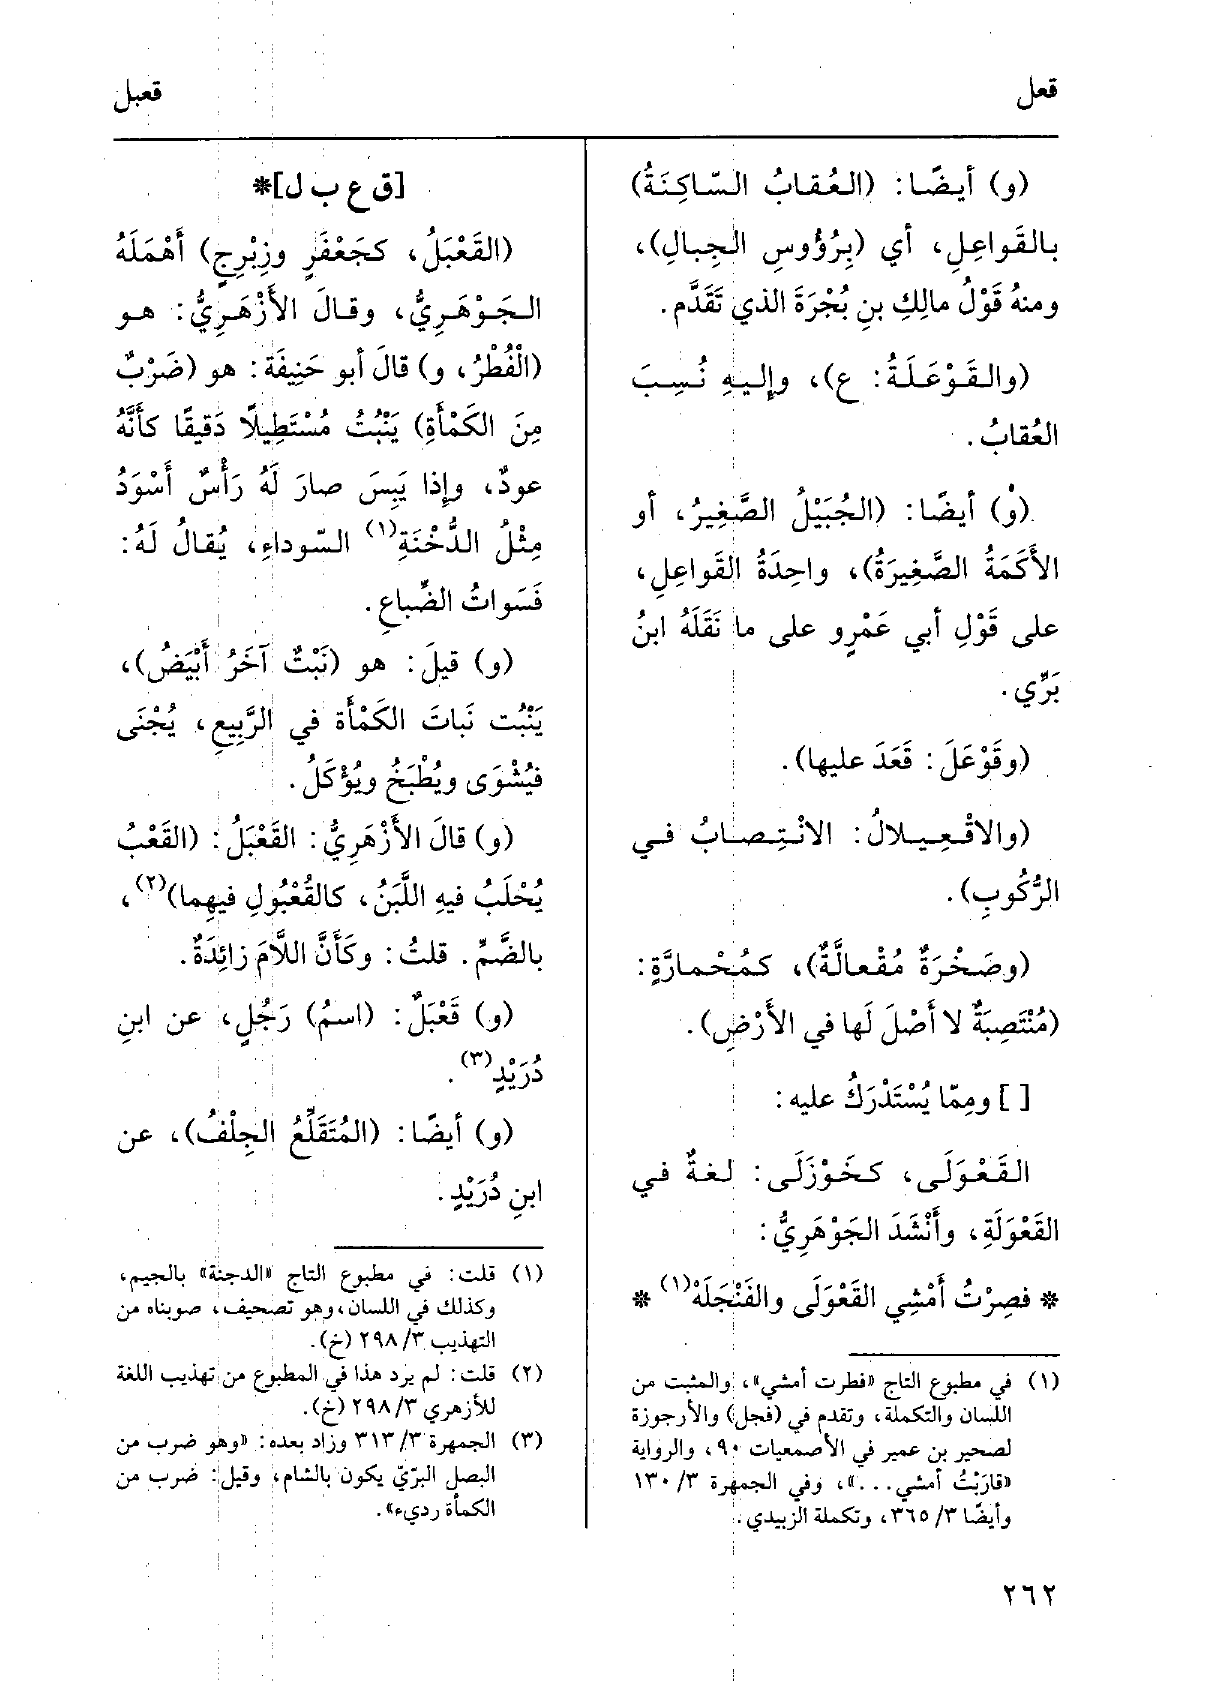 قعل
قعبل
(و) أيضًا: (العُقابُ السّاكِنَةُ)
بالقَواعِلِ، أي (بِرُؤُوسِ الجِبالِ)،
ومنهُ قَوْلُ مالِكِ بنِ بُجْرَةَ الذي تَقَدَّم.
(والقَوْعَلَةُ: ع)، وإليهِ نُسِبَ
العُقابُ.
(و) أيضًا: (الجُبَيْلُ الصَّغِيرُ، أو
الأَكَمَةُ الصَّغِيرَةُ)، واحِدَةُ القَواعِلِ،
على قَوْلِ أبي عَمْرٍو على ما نَقَلَهُ ابنُ
بَرِّي.
(وقَوْعَلَ: قَعَدَ عليها).
(والاقْعِيلالُ: الانْتِصابُ في
الرُّكُوبِ).
(وصَخْرَةٌ مُقْعالَّةٌ)، كمُحْمارَّةٍ:
(مُنْتَصِبَةٌ لا أَصْلَ لَها في الأَرْضِ).
[ ] ومِمّا يُسْتَدْرَكُ عليه:
القَعْوَلَى، كخَوْزَلَى: لغةٌ في
القَعْوَلَةِ، وأَنْشَدَ الجَوْهَرِيُّ:
* فصِرْتُ أَمْشِي القَعْوَلَى والفَنْجَلَهْ(١) *
(١) في مطبوع التاج «فطرت أمشي»، والمثبت من
اللسان والتكملة، وتقدم في (فجل) والأرجوزة
لصخير بن عمير في الأصمعيات ٩٠، والرواية
«قارَبْتُ أمشي...»، وفي الجمهرة ٣/ ١٣٠
وأيضًا ٣/ ٣٦٥، وتكملة الزبيدي.
[ق ع ب ل]*
(القَعْبَلُ، كجَعْفَرٍ وزِبْرِجٍ) أَهْمَلَهُ
الجَوْهَرِيُّ، وقالَ الأَزْهَرِيُّ: هو
(الْفُطْرُ، و) قالَ أبو حَنِيفَةَ: هو (ضَرْبٌ
مِنَ الكَمْأَةِ) يَنْبُتُ مُسْتَطِيلًا دَقيقًا كأَنَّهُ
عودٌ، وإذا يَبِسَ صارَ لَهُ رَأْسٌ أَسْوَدُ
مِثْلُ الدُّخْنَةِ(١) السّوداءِ، يُقالُ لَهُ:
فَسَواتُ الضِّباعِ.
(و) قيلَ: هو (نَبْتٌ آخَرُ أَبْيَضُ)،
يَنْبُت نَباتَ الكَمْأَة في الرَّبِيعِ، يُجْنَى
فيُشْوَى ويُطْبَخُ ويُؤْكَلُ.
(و) قالَ الأَزْهَرِيُّ: القَعْبَلُ: (القَعْبُ
يُحْلَبُ فيهِ اللَّبَنُ، كالقُعْبُولِ فيهِما)(٢)،
بالضَّمِّ. قلتُ: وكَأَنَّ اللّامَ زائِدَةٌ.
(و) قَعْبَلٌ: (اسمُ) رَجُلٍ، عن ابنِ
دُرَيْدٍ(٣).
(و) أيضًا: (المُتَقَلِّعُ الجِلْفُ)، عن
ابنِ دُرَيْدٍ.
(١) قلت: في مطبوع التاج «الدجنة» بالجيم،
وكذلك في اللسان، وهو تصحيف، صوبناه من
التهذيب ٣/ ٢٩٨ (خ).
(٢) قلت: لم يرد هذا في المطبوع من تهذيب اللغة
للأزهري ٣/ ٢٩٨ (خ).
(٣) الجمهرة ٣/ ٣١٣ وزاد بعده: «وهو ضرب من
البصل البرّيّ يكون بالشام، وقيل: ضرب من
الكمأة رديء».
٢٦٢